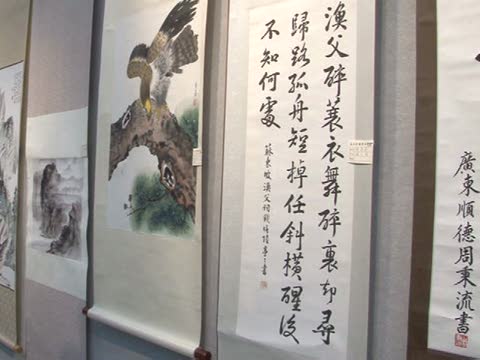 廣東順德周秉流書
漁父醉蓑衣舞醉裏却尋
歸路孤舟短棹任斜橫醒後
不知何處
蘇東坡漁父詞